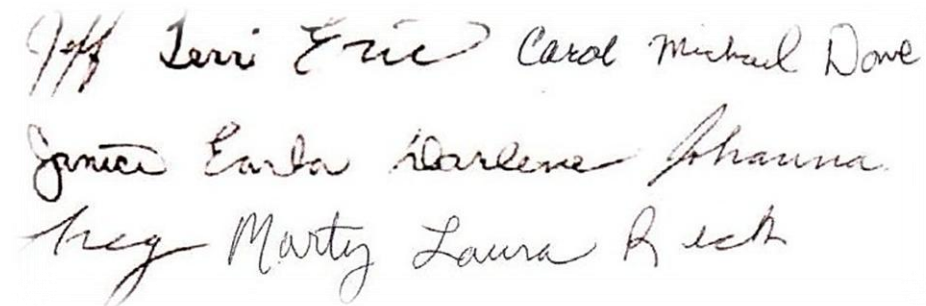 Jeff Terri Eric Carol Michael Dave
Janice Earla Darlene Johanna
Greg Marty Laura Rick